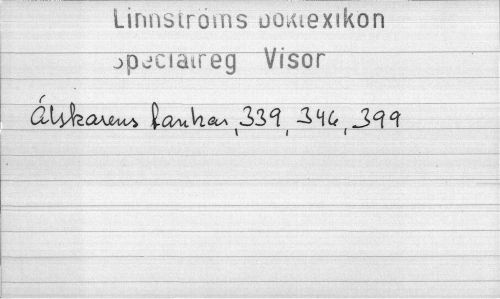 Linnströms Boklexikon
Specialreg Visor
Älskarens tankar, 339, 346, 399